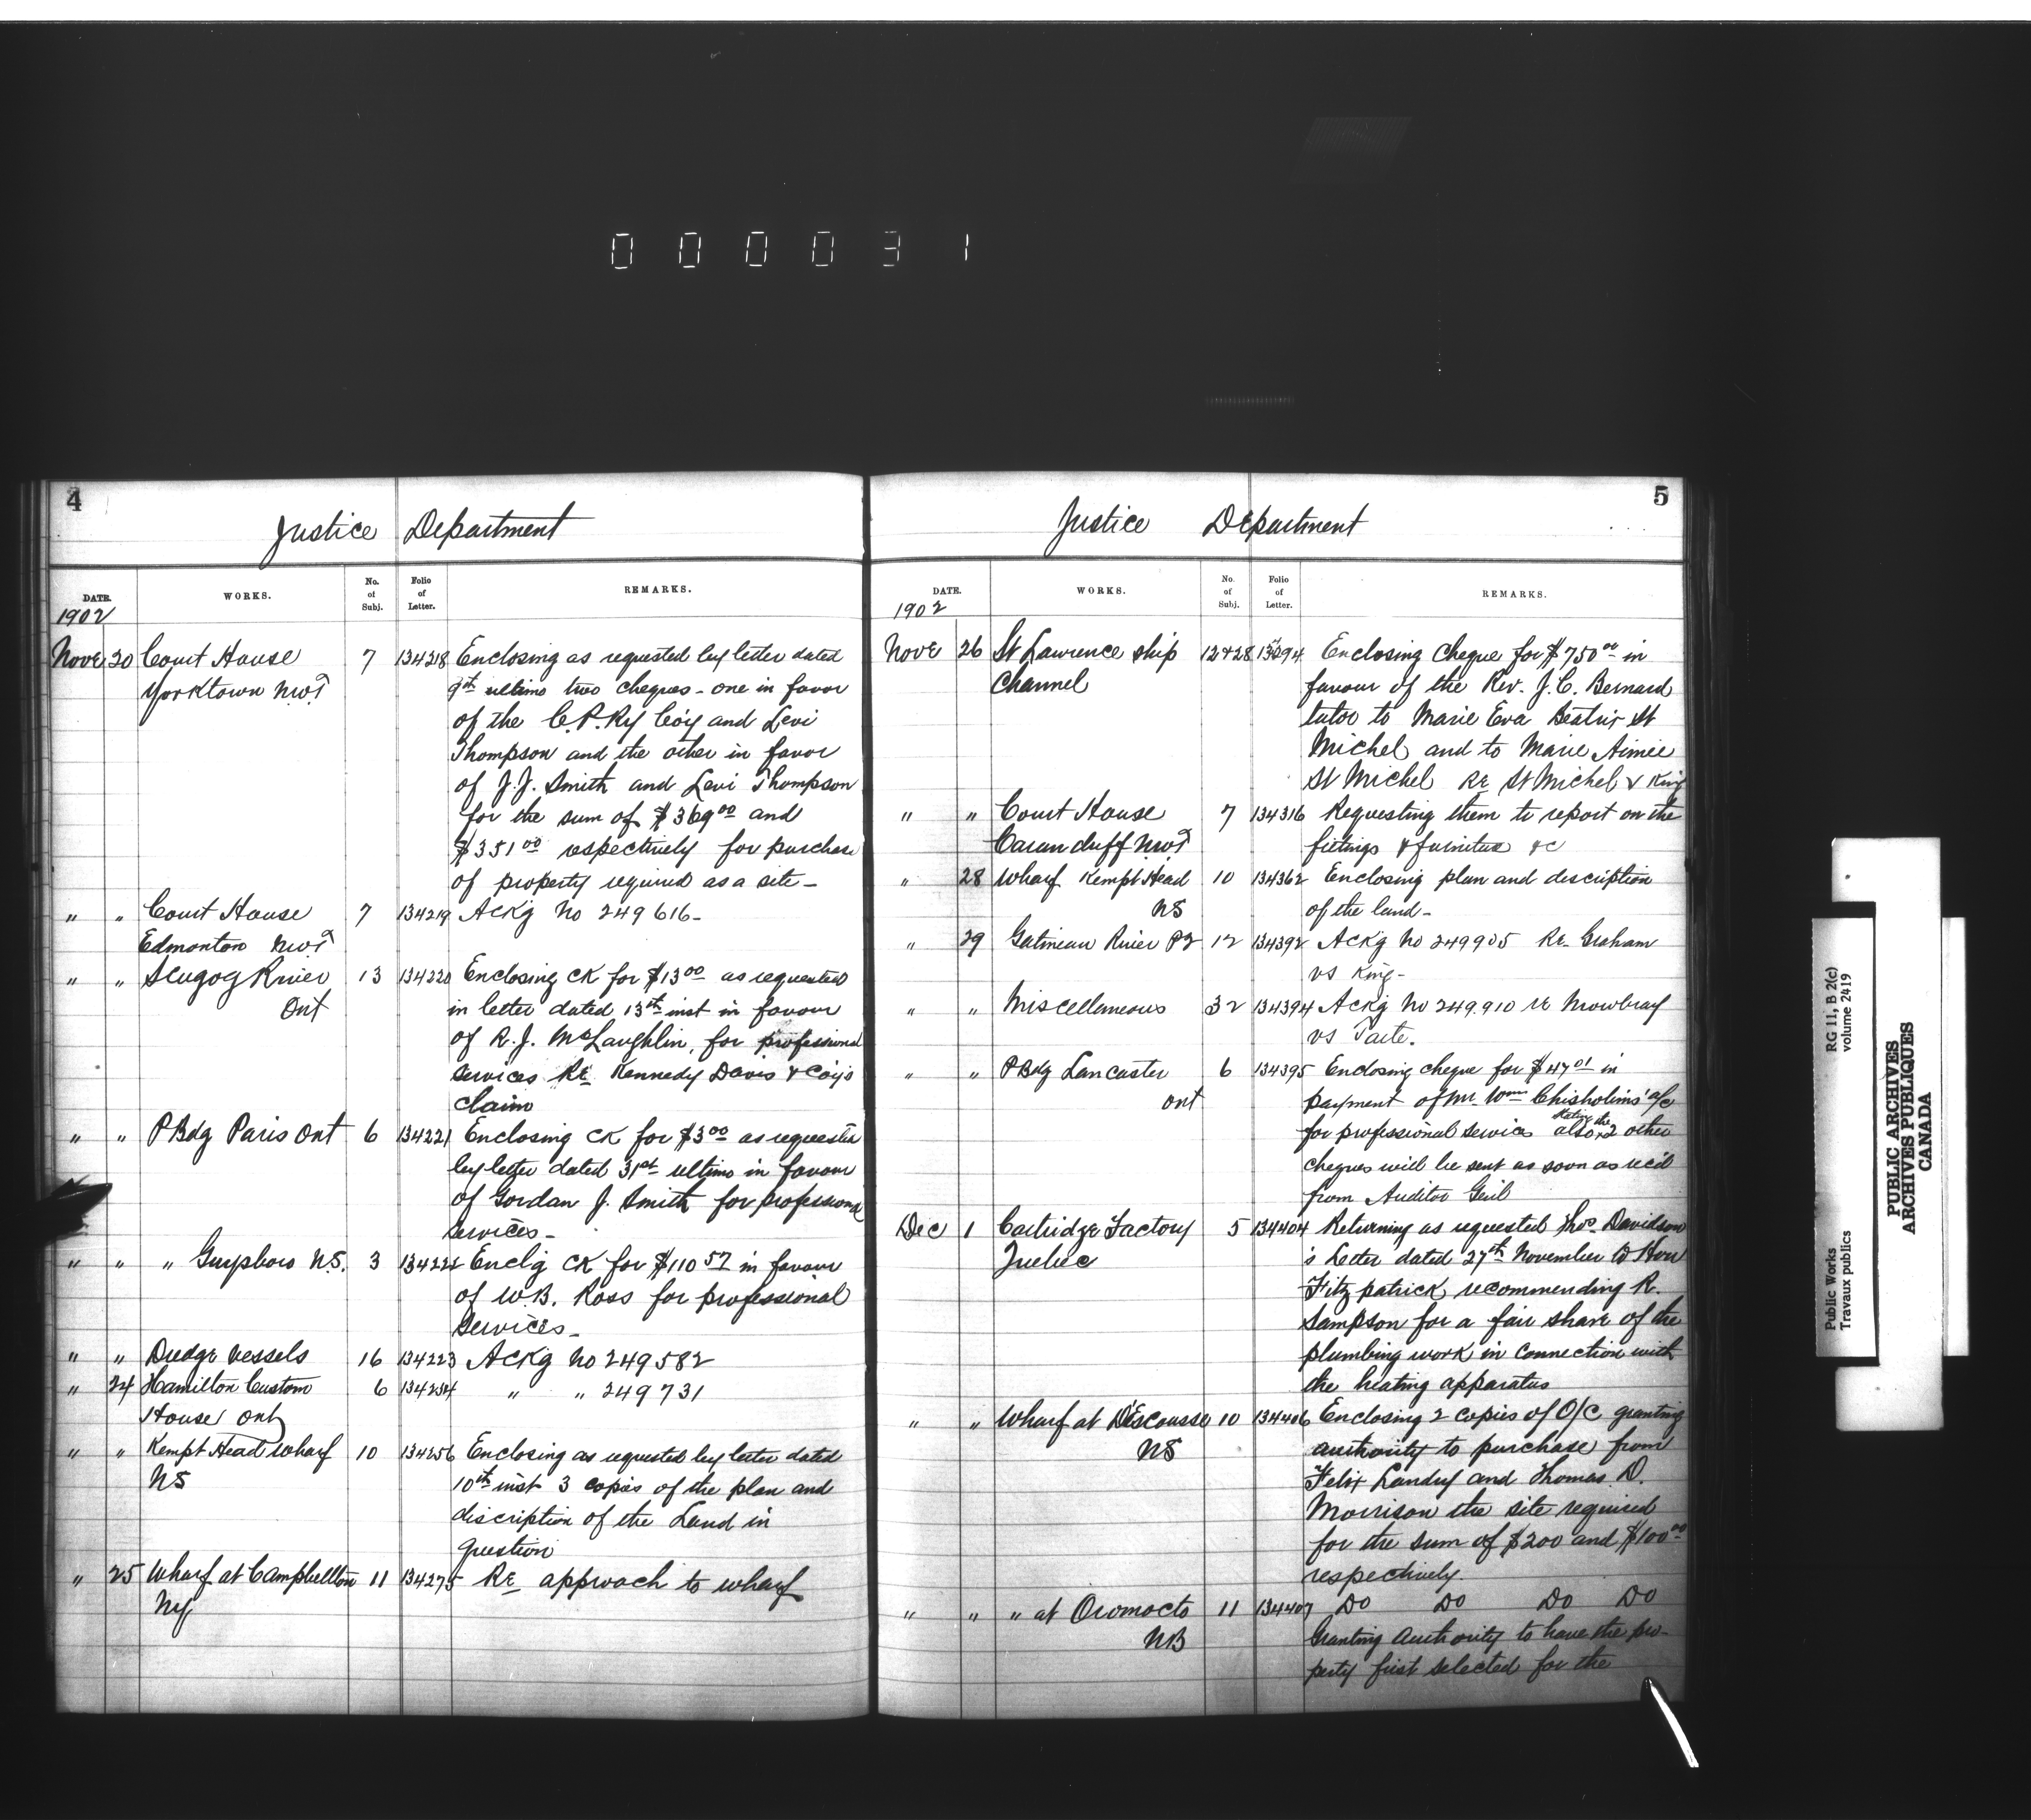 000031
4
Justice Department
DATE. WORKS. No. of Subj. Folio of Letter. REMARKS.
1902
Nove 20 Court House 7 134218 Enclosing as requested by letter dated
Yorktown NWT 9th ultimo two cheques - one in favor
of the C.P.Ry Co'y and Levi
Thompson and the other in favor
of J.J. Smith and Levi Thompson
for the sum of $369 00 and
$351 00 respectively for purchase
of property required as a site -
" " Court House 7 134219 Ackg No 249616 -
Edmonton NWT
" " Scugog River 13 134220 Enclosing ck for $13 00 as requested
Ont in letter dated 13th inst in favour
of R.J. McLaughlin, for professional
services Re Kennedy Davis & Coy's
claim
" " P Bdg Paris Ont 6 134221 Enclosing ck for $3 00 as requested
by letter dated 31st ultimo in favour
of Gordan J. Smith for professional
services -
" " " Guysboro N.S. 3 134222 Enclg ck for $110 57 in favour
of W.B. Ross for professional
services -
" " Dredge vessels 16 134223 Ackg No 249582
" 24 Hamilton Custom 6 134254 " " 249731
House Ont
" " Kempt Head wharf 10 134256 Enclosing as requested by letter dated
NS 10th inst 3 copies of the plan and
discription of the Land in
question
" 25 Wharf at Campbellton 11 134275 Re approach to wharf
5
Justice Department
DATE. WORKS. No. of Subj. Folio of Letter. REMARKS.
1902
Nove 26 St Lawrence ship 12 & 28 Enclosing cheque for $750 00 in
Channel favour of the Rev. J.C. Bernard
tutor to Marie Eva Beatrix St
Michel and to Marie Aimée
St Michel Re St Michel & King
" " Court House 7 134316 Requesting them to report on the
Carnduff NWT fittings & furniture &c
" 28 Wharf Kempt Head 10 134362 Enclosing plan and description
NS of the land -
" 29 Gatineau River PQ 12 134392 Ackg No 249905 Re Graham
vs King -
" " Miscellaneous 32 134394 Ackg No 249.910 re Mowbray
vs Tarte.
" " P Bdg Lancaster 6 134395 Enclosing cheque for $47 01 in
Ont payment of Mr. Wm Chisholms' a/c
for professional services also stating the 2 other
cheques will be sent as soon as rec'd
from Auditor Genl
Dec 1 Cartridge Factory 5 134404 Returning as requested Thos. Davidson
Quebec 's Letter dated 27th November to Hon
Fitzpatrick recommending R.
Sampson for a fair share of the
plumbing work in connection with
the heating apparatus
" " Wharf at D'Escousse 10 134406 Enclosing 2 copies of O/C granting
NS authority to purchase from
Felix Landry and Thomas D.
Morrison the site required
for the sum of $200 and $100 00
respectively.
" " " at Oromocto 11 134407 Do Do Do Do
NB Granting authority to have the pro-
perty first selected for the
PUBLIC ARCHIVES
ARCHIVES PUBLIQUES
CANADA
Public Works RG 11, B 2(c)
Travaux publics volume 2419